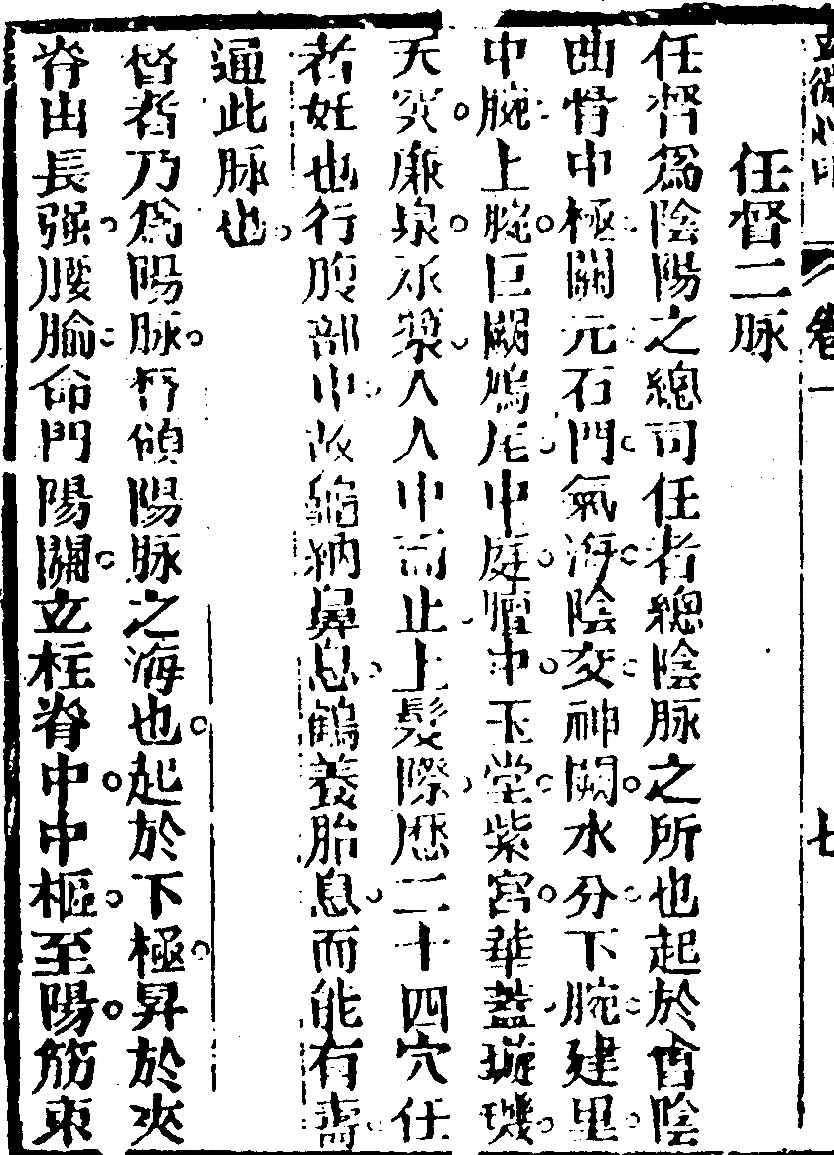 卷一
七
任督二脉
任督爲陰陽之總司任者總陰脉之所也起於會陰
曲骨中極關元石門氣海陰交神闕水分下腕建里
中腕上腕巨闕鳩尾中庭膻中玉堂紫宮華蓋璇璣
天突廉泉承漿入人中而止上髮際歷二十四穴任
者妊也行腹部中故龜納鼻息鶴養胎息而能有壽
通此脉也
督者乃爲陽脉督領陽脉之海也起於下極昇於夾
脊由長强腰腧命門陽關立柱脊中中樞至陽筋束